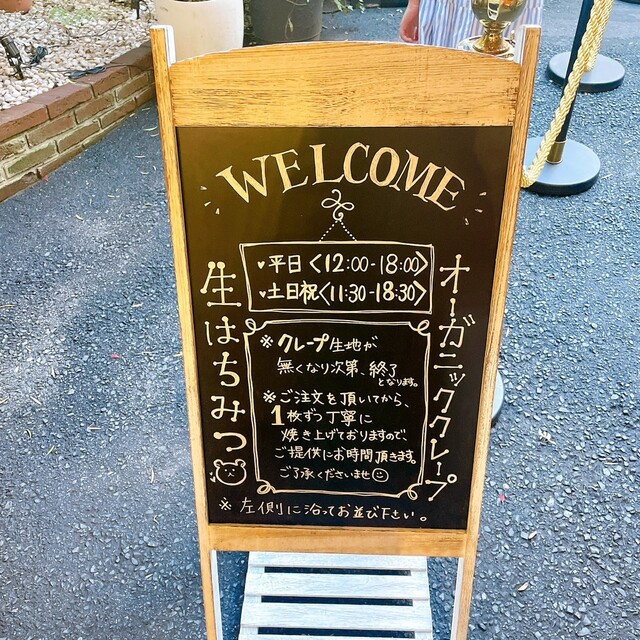 WELCOME
♥平日〈12:00-18:00〉
♥土日祝〈11:30-18:30〉
オーガニッククレープ
生はちみつ
※クレープ生地が
無くなり次第、終了
となります。
※ご注文を頂いてから、
1枚ずつ丁寧に
焼き上げておりますので、
ご提供にお時間頂きます。
ご了承くださいませ☺
※左側に沿ってお並び下さい。